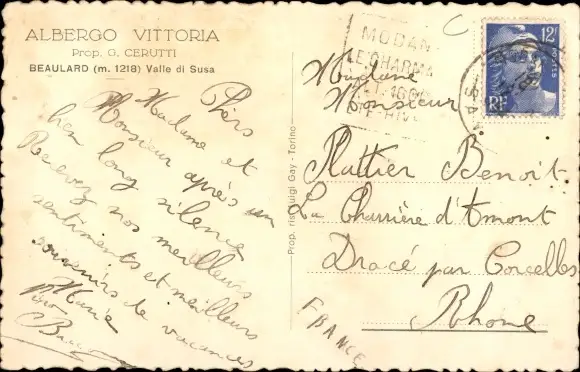 ALBERGO VITTORIA
Prop. G. CERUTTI
BEAULARD (m. 1218) Valle di Susa
Chers
Madame et
Monsieur après un
bien long silence
Recevez nos meilleurs
sentiments et meilleurs
souvenirs de vacances
Marie
Prop. ris. Luigi Gay - Torino
MODAN
LE CHARMA
ALT. 1060
ETE-HIV
12F
POSTES
RF
Madame
Monsieur
Plattier Benoit
La Charrière d'Amont
Dracé par Corcelles
Rhone
FRANCE